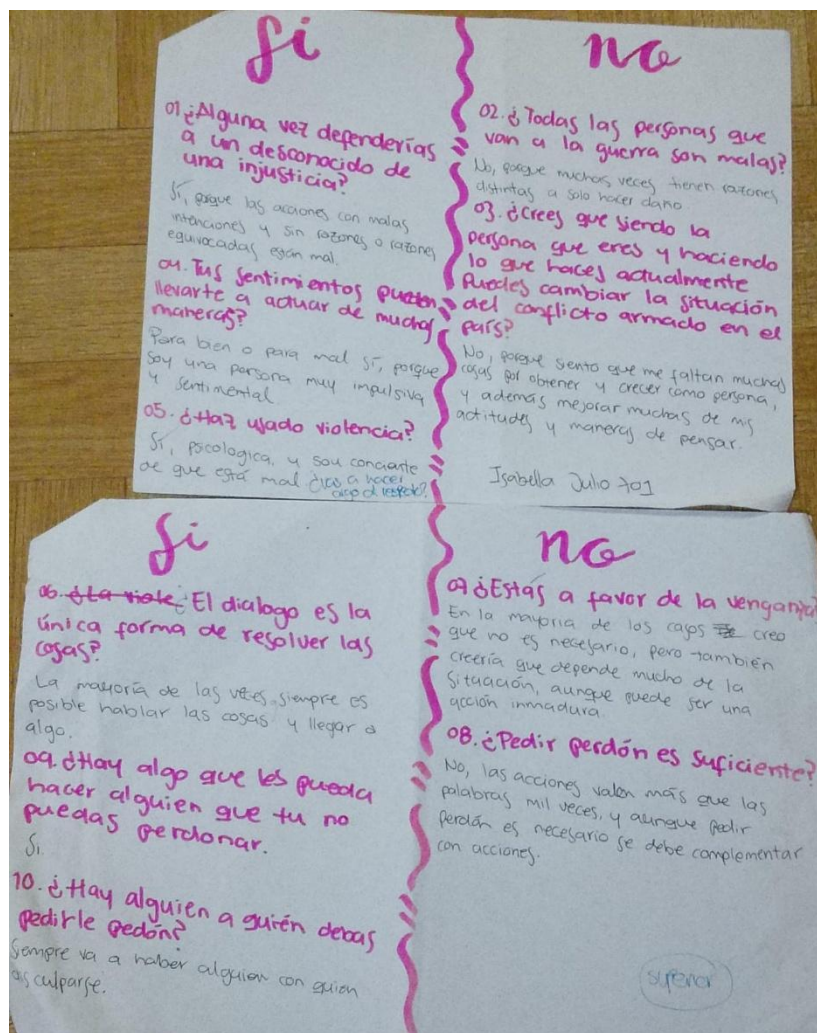 Si
01 ¿Alguna vez defenderías
a un desconocido de
una injusticia?
Sí, porque las acciones con malas
intenciones y sin razones o razones
equivocadas están mal.
04. Tus sentimientos pueden
llevarte a actuar de muchas
maneras?
Para bien o para mal sí, porque
soy una persona muy impulsiva
y sentimental
05. ¿Haz usado violencia?
Sí, psicologica, y soy conciente
de que está mal ¿vas a hacer
algo al respecto?
no
02. ¿Todas las personas que
van a la guerra son malas?
No, porque muchas veces tienen razones
distintas a solo hacer daño
03. ¿Crees que siendo la
persona que eres y haciendo
lo que haces actualmente
Puedes cambiar la situación
del conflicto armado en el
país?
No, porque siento que me faltan muchas
cosas por obtener y crecer como persona,
y además mejorar muchas de mis
actitudes y maneras de pensar.
Isabella Julio 701
Si
06. ¿La viole ¿El dialogo es la
única forma de resolver las
cosas?
La mayoría de las veces siempre es
posible hablar las cosas y llegar a
algo.
09. ¿Hay algo que les pueda
hacer alguien que tu no
puedas perdonar.
Si.
10. ¿Hay alguien a quién debas
pedirle pedón?
Siempre va a haber alguien con quien
disculparse.
no
07 ¿Estás a favor de la venganza?
En la mayoría de los casos creo
que no es necesario, pero también
creería que depende mucho de la
situación, aunque puede ser una
acción inmadura.
08. ¿Pedir perdón es suficiente?
No, las acciones valen más que las
palabras mil veces, y aunque pedir
perdón es necesario se debe complementar
con acciones.
superior